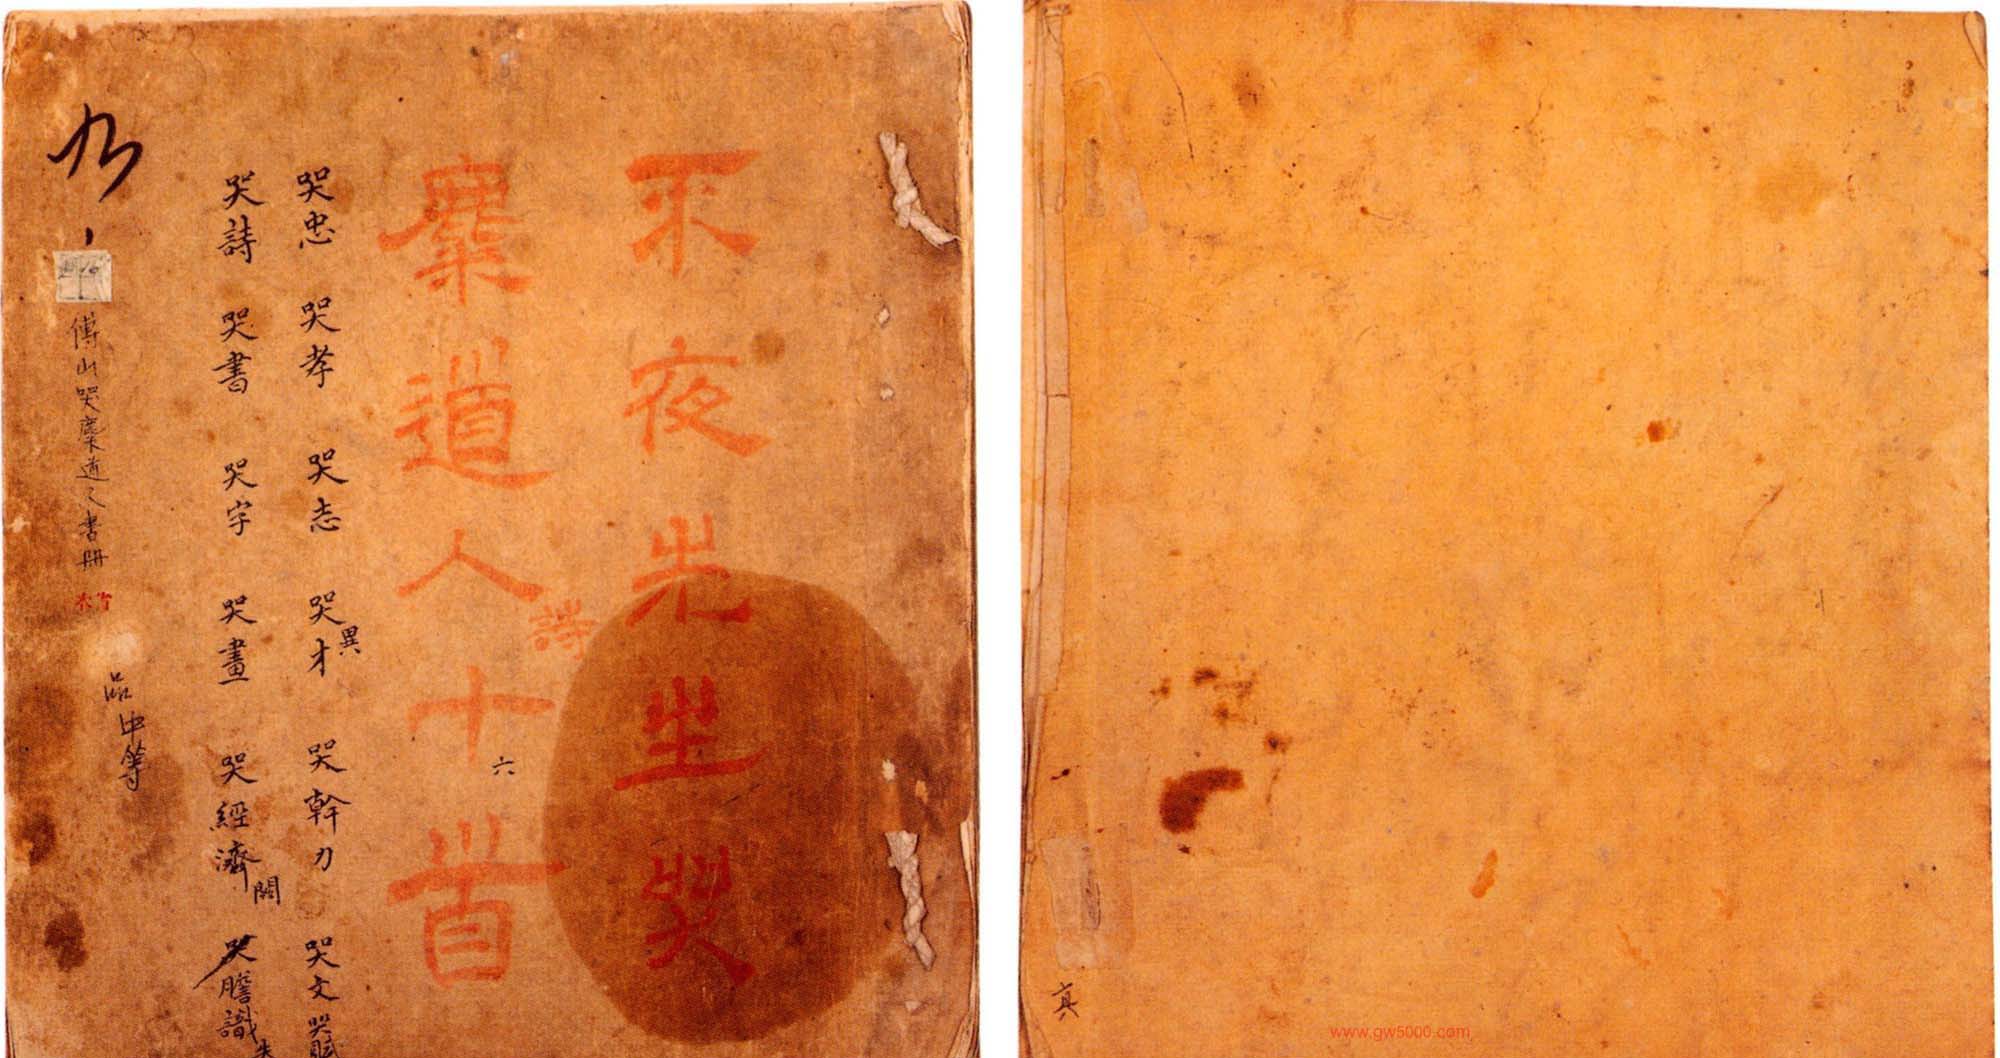 不夜先生哭
麋道人詩十六首
哭忠 哭孝 哭志 哭才異 哭幹力 哭文 哭賦
哭詩 哭書 哭字 哭畫 哭經濟闕 哭膽識
傅山哭麋道人書冊
品中等
真
www.gw5000.com